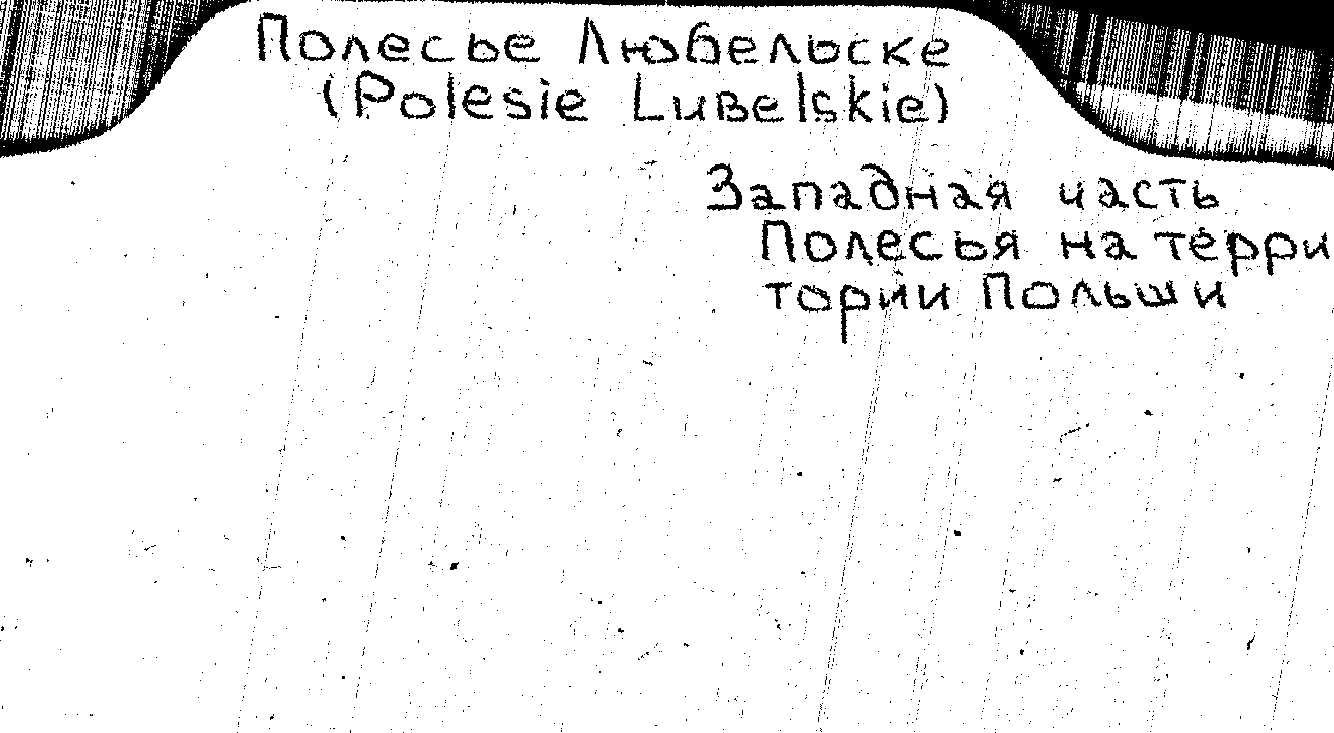 Полесье Любельске
(Polesie Lubelskie)
Западная часть
Полесья на терри
тории Польши